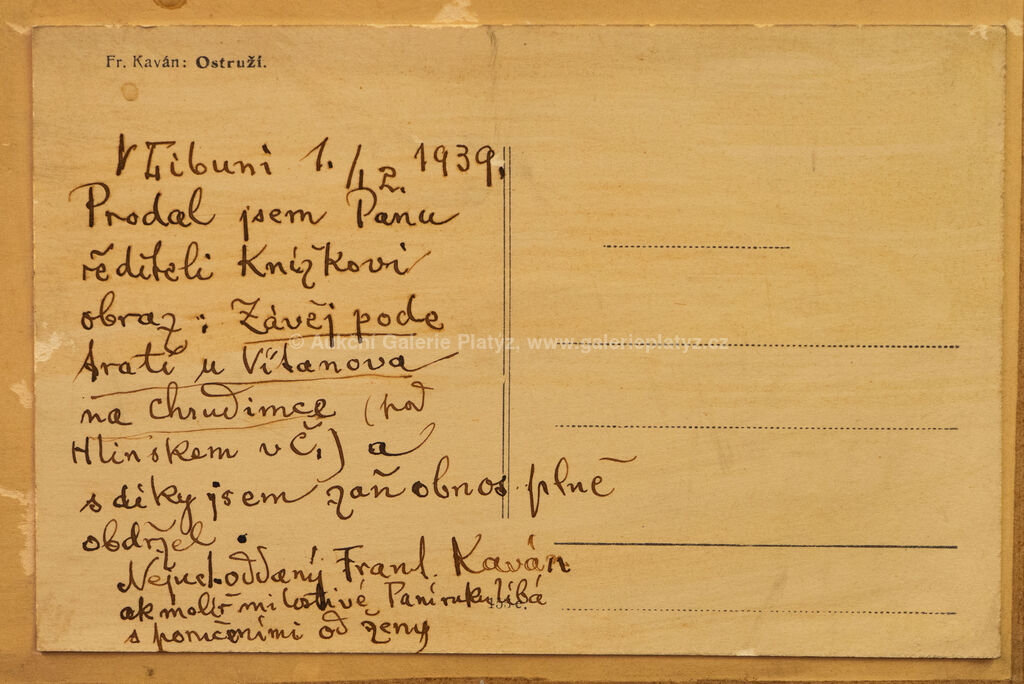 Fr. Kaván: Ostruží.
V Libuni 1./12. 1939.
Prodal jsem Panu
řediteli Knížkovi
obraz: Závěj pode
tratí u Vítanova
na Chrudimce (pod
Hlinskem v Č.) a
s díky jsem zaň obnos plně
obdržel.
© Aukční Galerie Platýz, www.galerieplatyz.cz
Frant. Kaván
ak malíř milostivé Paní ruku líbá
s poručeními od ženy